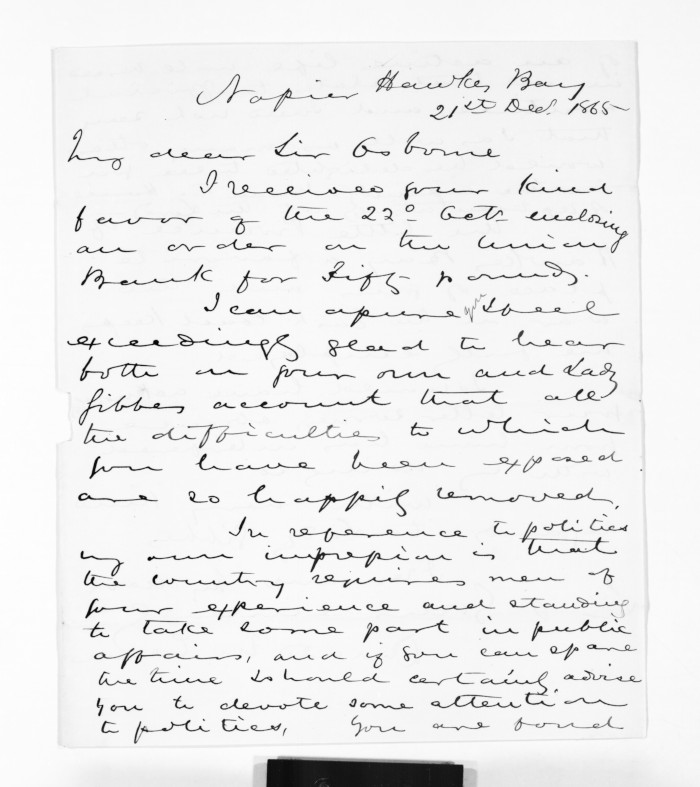 Napier Hawkes Bay
21st Decr 1865
My dear Sir Osborne
I received your kind
favor of the 22d Octr enclosing
an order on the Union
Bank for Fifty pounds.
I can assure you I feel
exceedingly glad to hear
both on your own and Lady
Gibbes account that all
the difficulties to which
you have been exposed
are so happily removed.
In reference to politics
my own impression is that
the country requires men of
your experience and standing
to take some part in public
affairs, and if you can spare
the time I should certainly advise
you to devote some attention
to politics, You are bound